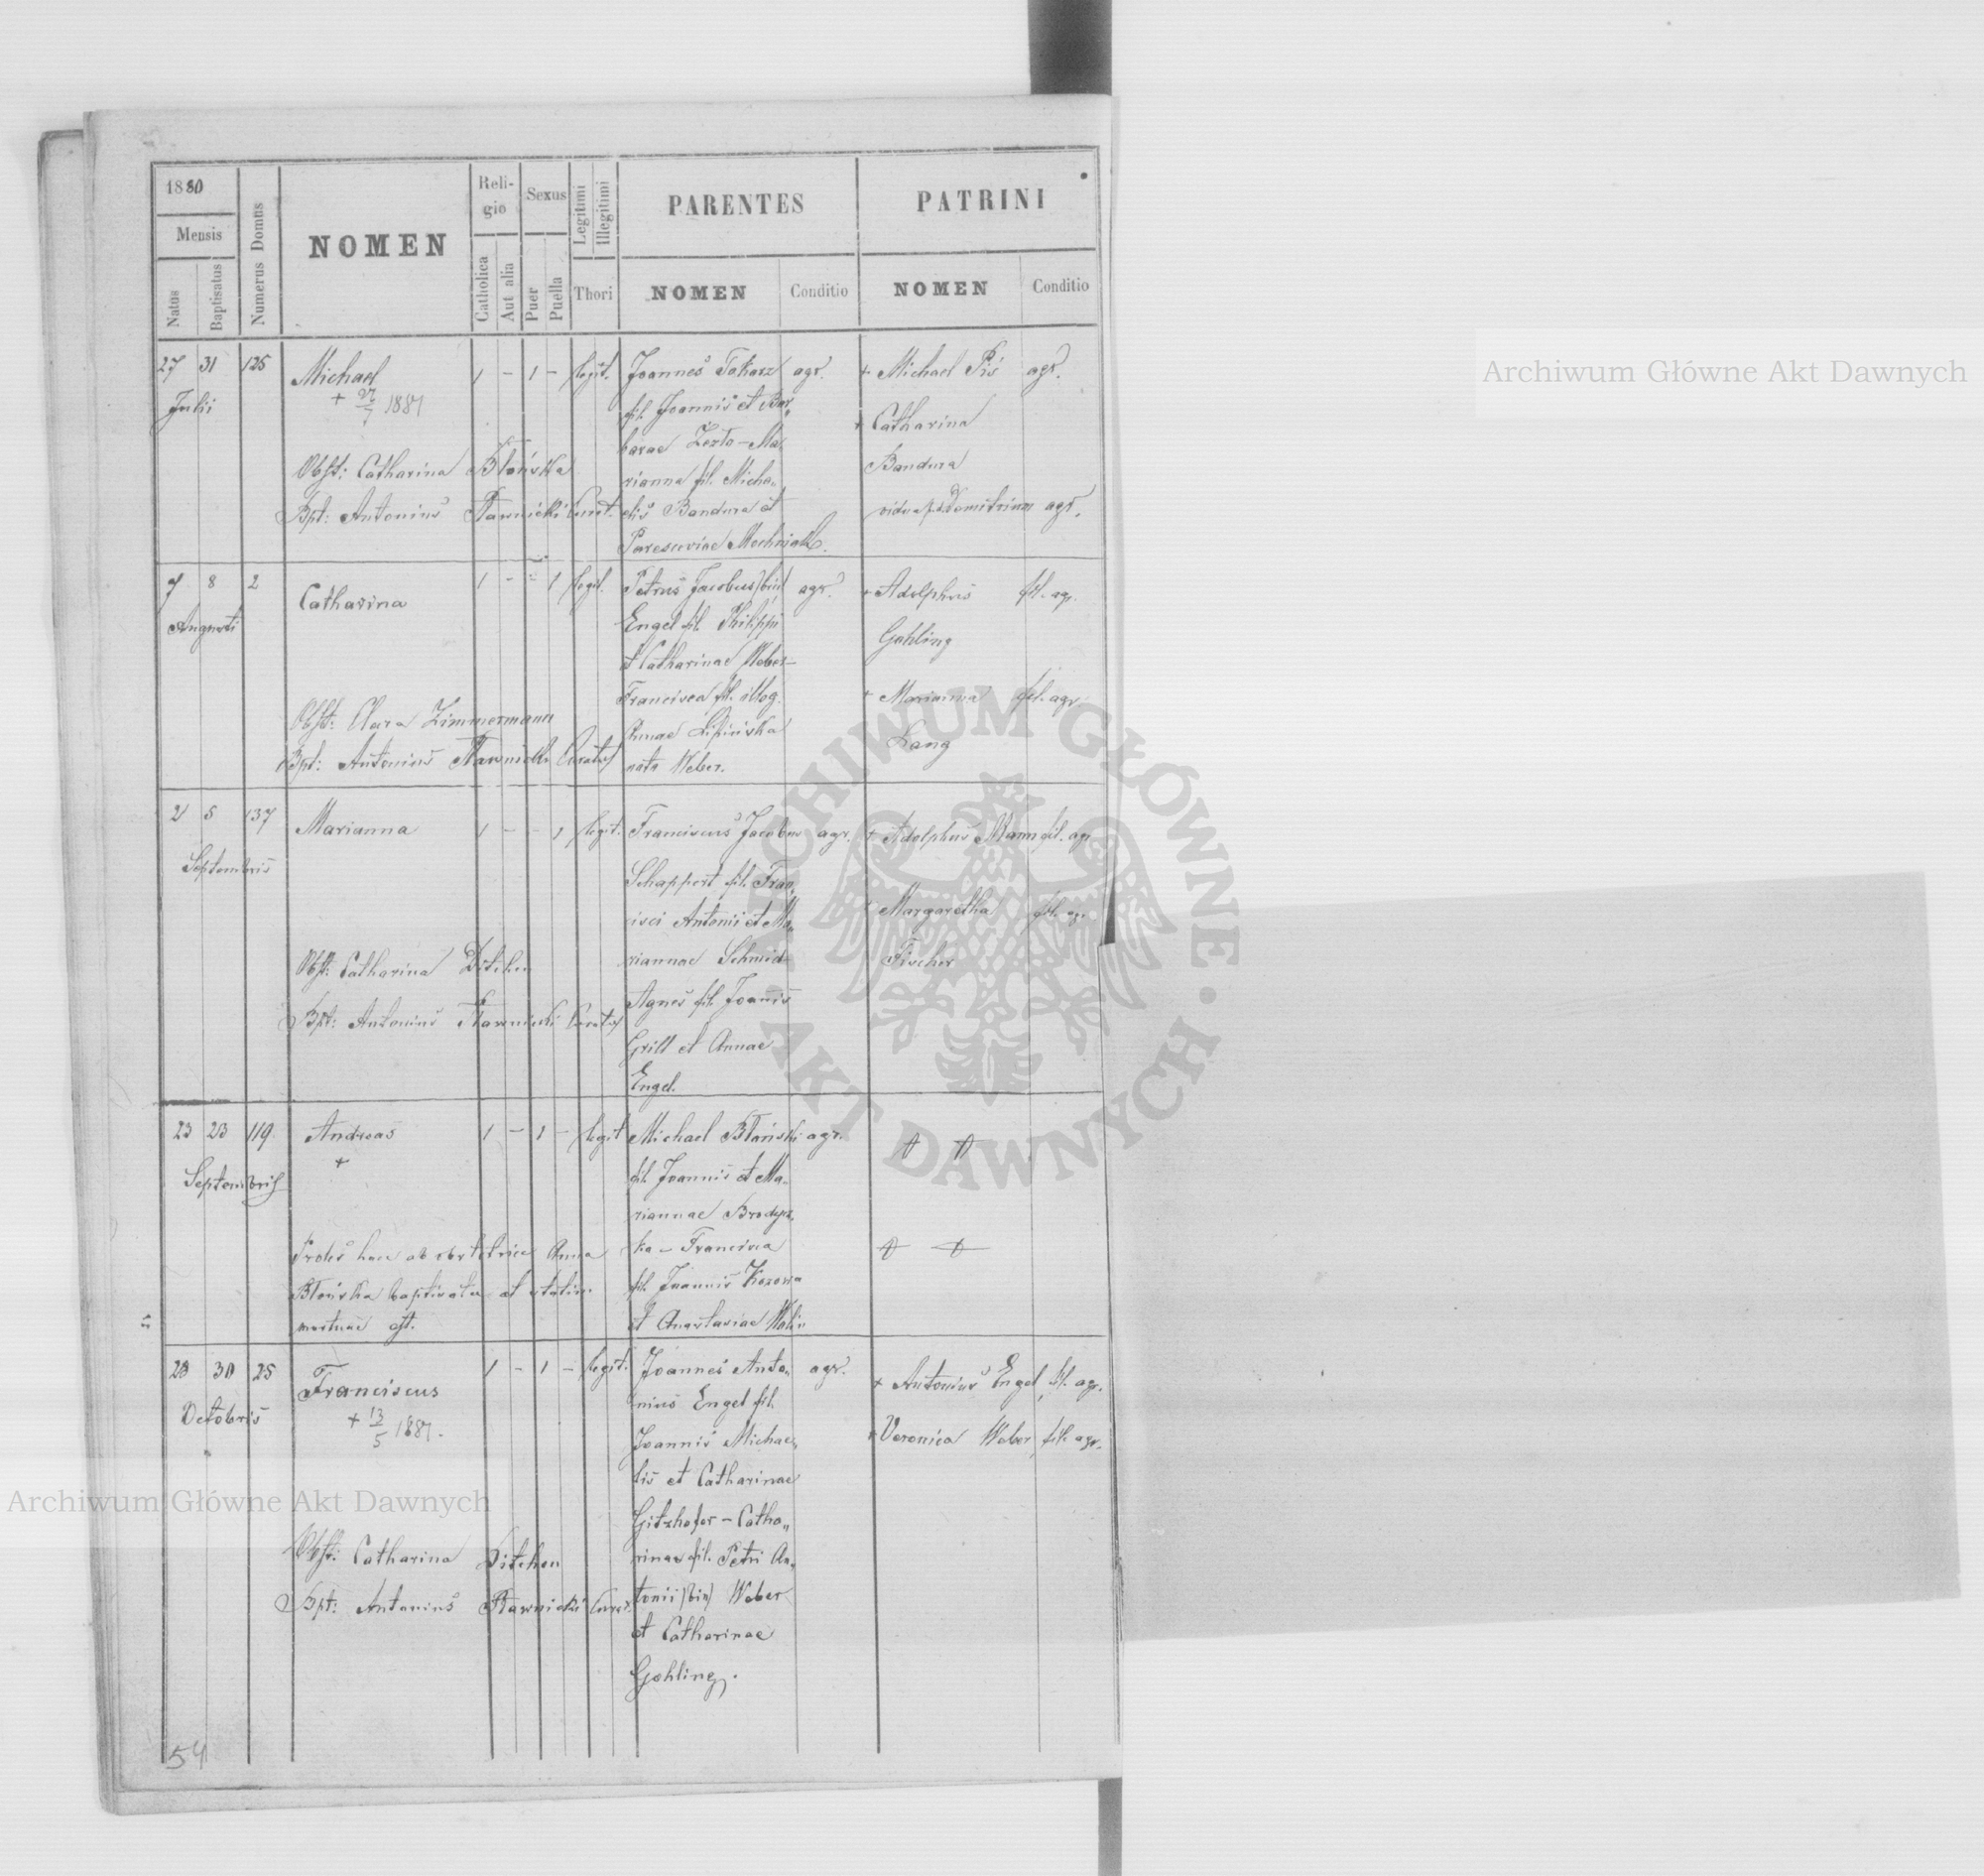 1880
Mensis
Natus
Baptisatus
Numerus Domus
NOMEN
Religio
Catholica
Aut alia
Sexus
Puer
Puella
Legitimi
Illegitimi
Thori
PARENTES
NOMEN
Conditio
PATRINI
NOMEN
Conditio
27 31 125
Julii
Michael
+ 27/7 1887
Obst: Catharina Błońska
Bpt: Antonius Curat.
1 - 1 - legit.
Joannes Tokarz agr.
fil. Joannis et Bar„
barae - Ma„
rianna fil. Micha„
elis Bandura et
Parasceviae
+ Michael Piś agr.
+ Catharina
Bandura
vidua p. Demitrium agr.
7 8 2
Augusti
Catharina
Obst: Clara Zimmermann
Bpt: Antonius
1 - - 1 legit.
Petrus Jacobus (bin) agr.
Engel fil. Philippi
et Catharinae Weber -
Francisca fil. illeg.
Annae Lipińska
nata Weber.
+ Adolphus fil. agr.
Gohling
+ Marianna fil. agr.
Lang
2 5 137
Septembris
Marianna
Obst: Catharina Ditchen
Bpt: Antonius
1 - - 1 legit.
Franciscus Jacobus agr.
Schappert fil. Fran„
cisci Antonii et Ma„
riannae Schmid -
Agnes fil. Joannis
Grill et Annae
Engel.
+ Adolphus Mann fil. agr.
+ Margaretha fil. agr.
Fischer
23 23 119
Septembris
Andreas
+
Proles haec ab obstetrice Anna
Błońska baptisata et statim
mortua est.
1 - 1 - legit
Michael Błoński agr.
fil. Joannis et Ma„
riannae
ka - Francisca
fil. Joannis
et Anastasiae
28 30 25
Octobris
Franciscus
+ 13/5 1887.
Obst: Catharina Ditchen
Bpt: Antonius
1 - 1 - legit.
Joannes Anto„ agr.
nius Engel fil.
Joannis Michae„
lis et Catharinae
Gitzhofer - Catha„
rinae fil. Petri An„
tonii (bin) Weber
et Catharinae
Gohling.
+ Antonius Engel fil. agr.
+ Veronica Weber fil. agr.
54
Archiwum Główne Akt Dawnych
Archiwum Główne Akt Dawnych
ARCHIWUM GŁÓWNE · AKT DAWNYCH ·